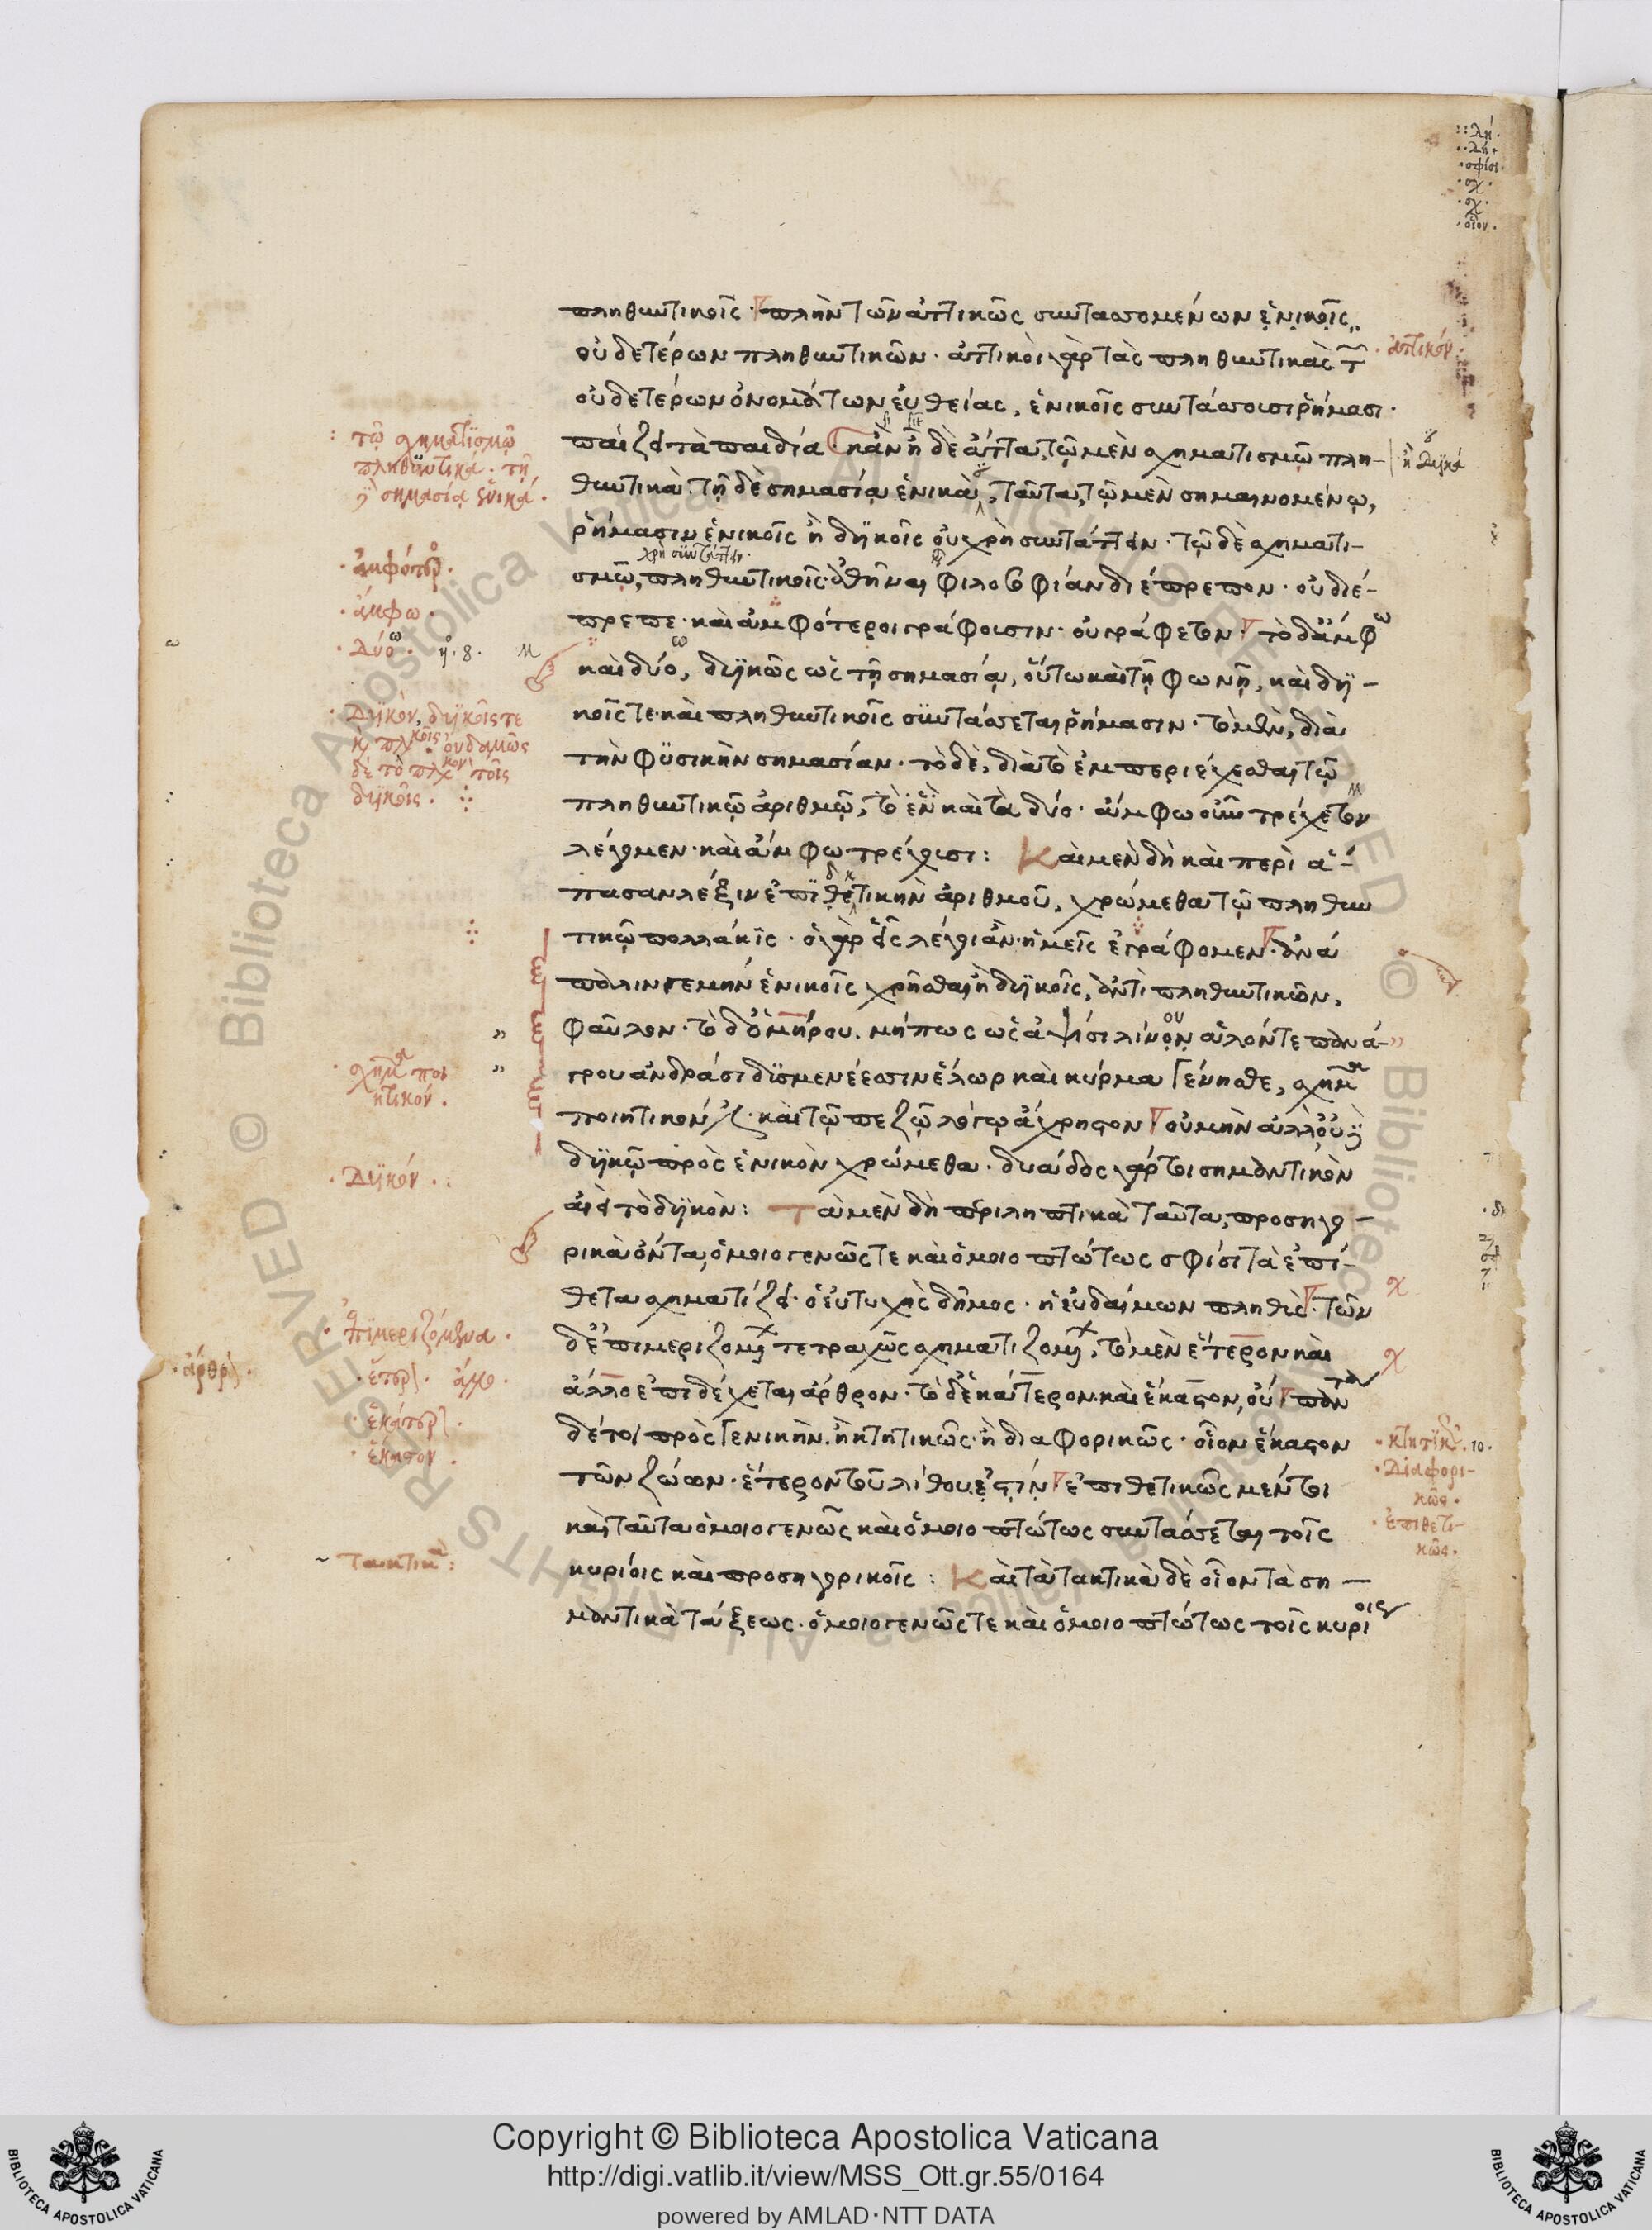 πληθυντικοῖς· πλὴν τῶν ἀττικῶς συντασσομένων ἑνικοῖς,
οὐδετέρων πληθυντικῶν· ἀττικοὶ γὰρ τὰς πληθυντικὰς τ̃
οὐδετέρων ὀνομάτων εὐθείας, ἑνικοῖς συντάσσουσι ῥήμασι·
παίζει τὰ παιδία κἂν ᾖ δὲ ἄττα, τῷ μὲν σχηματισμῷ πλη-
θυντικὰ· τῇ δὲ σημασίᾳ ἑνικὰ, ταῦτα, τῷ μὲν σημαινομένῳ,
ῥήμασιν ἑνικοῖς ἢ δυϊκοῖς οὐ χρὴ συντάττειν· τῷ δὲ σχηματι-
σμῷ, πληθυντικοῖς· ἀθῆναι φιλοσοφίαν διέπρεπον· οὐ διέ-
πρεπε· καὶ ἀμφότεροι γράφουσιν· οὐ γράφετον· τὸ δ' ἄμφω
καὶ δύο, δυϊκῶς ὡς τῇ σημασίᾳ, οὕτω καὶ τῇ φωνῇ, καὶ δυϊ-
κοῖς τε καὶ πληθυντικοῖς συντάσσεται ῥήμασιν· τὸ μὲν, διὰ
τὴν φυσικὴν σημασίαν· τὸ δὲ, διὰ τὸ ἐμπεριέχεσθαι τῷ
πληθυντικῷ ἀριθμῷ, τὸ ἓν καὶ τὰ δύο· ἄμφω οὖν τρέχετον
λέγομεν· καὶ ἄμφω τρέχουσι: Καὶ μὲν δὴ καὶ περὶ ἅ-
πασαν λέξιν ἐπιδεκτικὴν ἀριθμοῦ, χρώμεθα τῷ πληθυν
τικῷ πολλάκις· ὁ γὰρ εἷς λέγει ἂν· ἡμεῖς ἐγράφομεν· ἀνά
παλιν γε μὴν ἑνικοῖς χρῆσθαι ἢ δυϊκοῖς, ἀντὶ πληθυντικῶν,
φαῦλον· τὸ δ' ὁμήρου. μήπως ὡς ἀψῖσι λίνου ἁλόντε πανά-
γρου ἀνδράσι δυσμενέεσσιν ἕλωρ καὶ κύρμα γένησθε, σχῆμα
ποιητικόν ἐστι· καὶ τῷ πεζῷ λόγῳ ἄχρηστον οὐ μὴν ἀλλ' οὐδὲ
δυϊκῷ πρὸς ἑνικὸν χρώμεθα· δυάδος γάρ τοι σημαντικὸν
ἀεὶ τὸ δυϊκὸν: Τὰ μὲν δὴ περιληπτικὰ ταῦτα, προσηγο-
ρικὰ ὄντα, ὁμοιογενῶς τε καὶ ὁμοιοπτώτως σφίσι τὰ ἐπί-
θετα σχηματίζει· ὁ εὐτυχὴς δῆμος· ἡ εὐδαίμων πληθὺς· τῶν
δ' ἐπιμεριζομένων τετραχῶς σχηματιζομένων, τὸ μὲν ἕτερον καὶ
ἄλλο ἐπιδέχεται ἄρθρον· τὸ δ' ἑκάτερον καὶ ἕκαστον, οὔ· πάντα
δέ τοι πρὸς γενικὴν. ἢ κτητικῶς· ἢ διαφορικῶς· οἷον ἕκαστον
τῶν ζώων· ἕτερον τοῦ λίθου ἐστίν· ἐπιθετικῶς μέντοι
καὶ ταῦτα ὁμοιογενῶς καὶ ὁμοιοπτώτως συντάσσεται τοῖς
κυρίοις καὶ προσηγορικοῖς: Καὶ τὰ τακτικὰ δὲ οἷον τὰ ση-
μαντικὰ τάξεως· ὁμοιογενῶς τε καὶ ὁμοιοπτώτως τοῖς κυρίοις
ἀττικόν
τῷ σχηματισμῷ
πληθυντικά. τῇ
δὲ σημασίᾳ ἑνικά.
ἢ δυϊκά
χρὴ συντάττειν
ἄμφω
δύο
Δυϊκὸν, δυϊκοῖς τε
οὐδαμῶς
δὲ τὸ
τοῖς
δυϊκοῖς.
σχῆμα ποι
ητικόν.
Δυϊκόν
ἐπιμεριζόμενα
ἕκαστον
Διαφορι-
κῶς.
ἐπιθετι-
κῶς.
τακτικὰ:
Copyright © Biblioteca Apostolica Vaticana
http://digi.vatlib.it/view/MSS_Ott.gr.55/0164
powered by AMLAD·NTT DATA
BIBLIOTECA APOSTOLICA VATICANA
BIBLIOTECA APOSTOLICA VATICANA